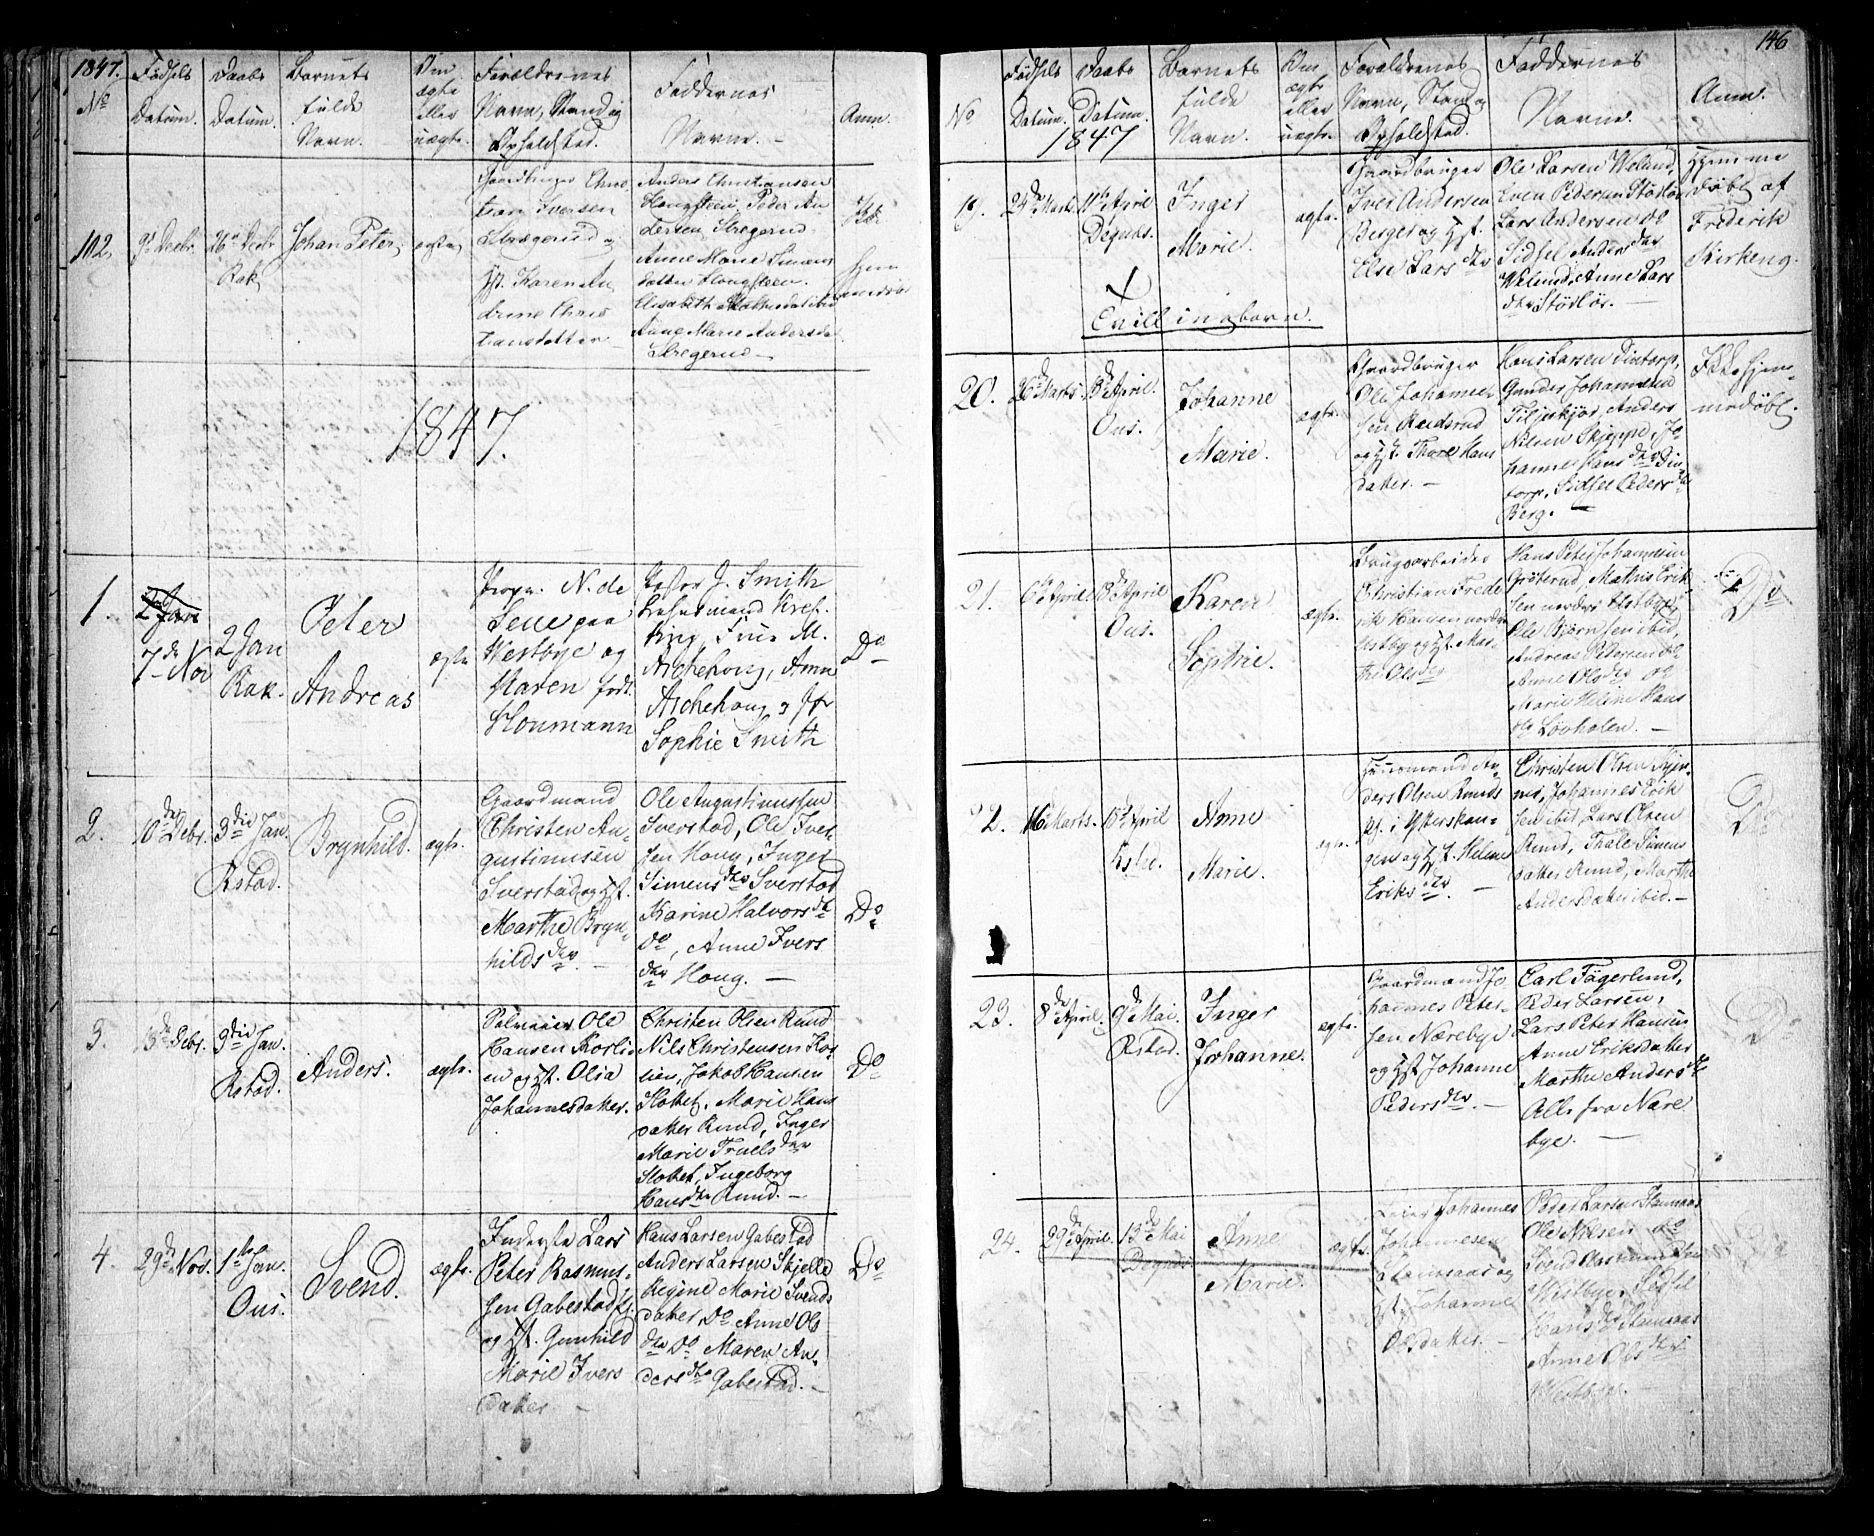 1847.
No
Fødsels
Datum.
Daabs
Datum.
Barnets
fulde
Navn.
Om
ægte
eller
uægte.
Forældrenes
Navn, Stand og
Opholdsted.
Faddernes
Navne. -
Anm.
102.
9 Decbr.
26 Decbr
Rak
Johan Peter,
ægte
Gaardbruger Chris
tian Iversen
Stregerud og
Hst. Karen An
drine Chris
tiansdatter
Anders Christiansen
Haugsteen, Peder An
dersen Stregerud
Anne Marie Simens
datter Haugsteen.
Elisabeth
Anne Marie Andersda
Stregerud
Hjem
medøbt
1847.
1.
2 Jan
7de Nov
2 Jan
Rak.
Peter
Andreas
ægte
Propr. N. de
Seue paa
Westbye og
Maren født
Houmann
Pastor J. Smith
Lehnsmand Kref.
Ring, Frue M.
Aschehoug, Anne
Aschehoug og Jfr
Sophie Smith
Do
2.
10de Debr.
3die Jan.
Rstad.
Brynhild.
ægte.
Gaardmand
Christen Au-
gustinusen
Sverstad og Hst.
Marthe Bryn-
hildsdtr. -
Ole Augustinussen
Sverstad, Ole Iver
sen Houg, Inger
Simensdtr Sverstad
Karine Halvorsdtr
do, Anne Ivers
dtr Houg. -
Do
3.
13de Debr.
3die Jan.
Rstad.
Anders.
ægte.
Pølmager Ole
Hansen Korsli
en og Hst. Olia
Johannesdatter.
Christen Olsen Rund
Nils Christensen Kors
lien, Jakob Hansen
Slottet, Marie Hans
datter Rund, Inger
Marie Truelsdtr
Slottet, Ingeborg
Hansdtr Rund. -
Do
4.
29de Nov.
1ste Jan.
Ous.
Svend.
ægte.
Inderste Lars
Peter Rasmus-
sen Gabestad Ej.
og Hst. Gunhild
Marie Ivers
datter -
Hans Larsen Gabestad
Anders Larsen Skjelle
Regine Marie Svends
datter, Do Anne Ols
dtr Do Maren An-
dersdtr Gabestad. -
Do
146
No
Fødsels
Datum.
Daabs
Datum.
1847
Barnets
fulde
Navn.
Om
ægte
eller
uægte.
Forældrenes
Navn, Stand og
Opholdsted.
Faddernes
Navne.
Anm.
19.
24de Marts
11te April
Degnæs.
Inger
Marie.
ægte.
Gaardbruger
Iver Andersen
Berger og Hst.
Else Larsdtr
Ole Larsen Welund,
Even Pedersen Stødlør
Lars Andersen do
Sidsel Andersdtr
Welund, Anne Lars
dtr Stødlør. -
Hjemme
døbt af
Frederik
Kirkeng.
Tvillingbørn.
20.
26de Marts.
18de April.
Ous.
Johanne
Marie.
ægte.
Gaardbruger
Ole Johannes
sen Rudsrud
og Hst. Thore Hans
datter. -
Hans Larsen Dintorp,
Gunder Johannesen
Tiljeskjør, Anders
Nilsen Skjeppe, Jo
hannes Hansdtr Din
torp, Sidsel Pedersdtr
Berg.
Ikke hjem-
medøbt.
21.
6te April
18de April
Ous.
Karen
Sophie.
ægte.
Brugsarbeider
Christian Frede
rik Hansen nordre
Estbye og Hst. Mar-
the Olsdtr
Hans Peter Johannesen
Grøterud, Mathis Erik
sen nordre Estbye
Ole Bjørnsen ibid,
Andreas Petersen do
Anne Olsdtr og
Marie Heline Hans
dtr Lovholen. -
Do
22.
16de Marts.
18de April
Rstd.
Anne
Marie.
ægte.
Huusmand An-
ders Olsen Runds
Ej. i Ytterskau-
gen og Hst. Helene
Eriksdtr. -
Christen Olsen Skjen-
nis, Johannes Erik
sen ibid, Lars Olsen
Rund, Thale Simens
datter Rund, Marthe
Andersdatter ibid. -
Do
23.
8de April.
9de Mai.
Rstad.
Inger
Johanne.
ægte.
Gaardmand Jo
hannes Peter-
sen Nærebye
og Hst Johanne
Pedersdtr. -
Carl Fagerlund,
Peder Larsen,
Lars Peter Hansen
Anne Eriksdatter
Marthe Andersdtr
Alle fra Nære
bye. -
Do
24.
29de April.
13de Mai
Degnæs
Anne
Marie.
ægte.
Leier Johannes
Johannesen
Stamsaas og
Hst. Johanne
Olsdatter. -
Peder Larsen Stamsaas
Ole Nilsen do
Svend Rasmussen
Westbye, Sidsel
Hansdtr Stamsaas
Anne Olsdtr
Westbye. -
Do